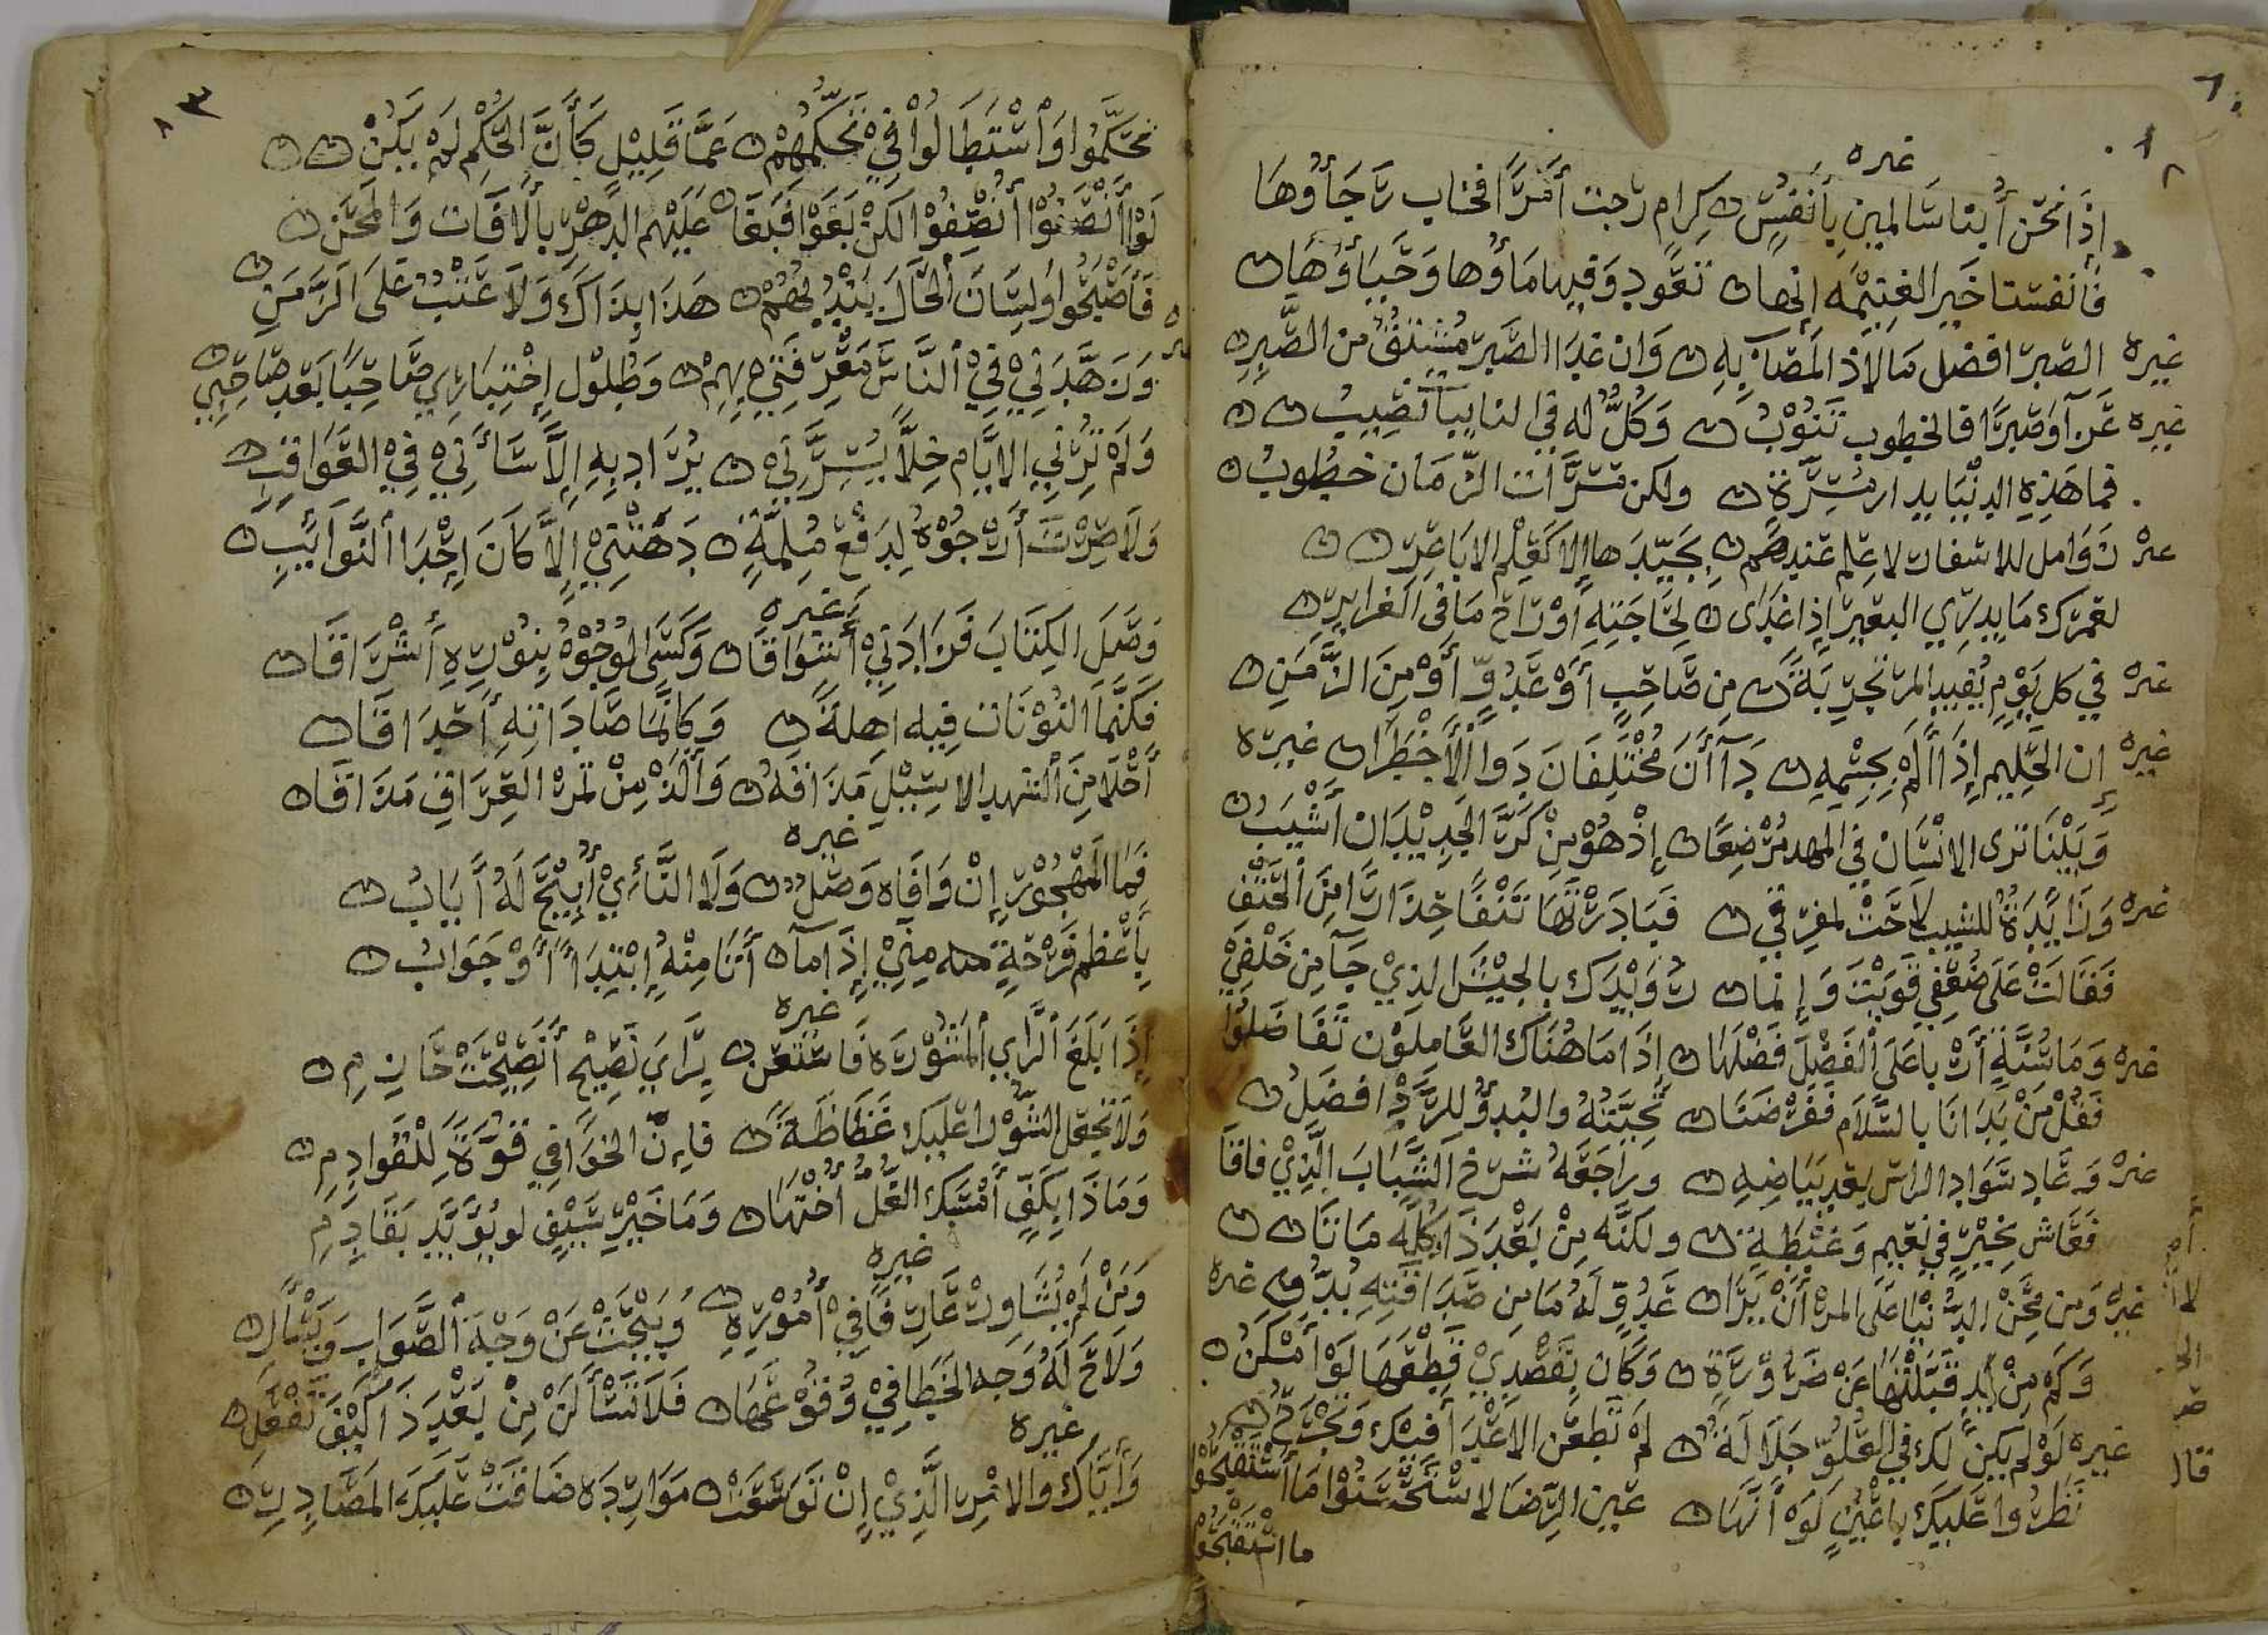 غيره
اذَا نحْن أُبنا سَالمين بأنفسٍ كِرامٍ رجت أمرًا فخاب رجَاؤُها
فأنفسنا خَير الغنيمه إنها تعود وفيها ماؤُها وَحَياؤُهَا
غيره الصبر افضل ما لاذ المصَاب بِهِ وَان غدَا الصبر مشتق من الصَّبِرِ
غيره عَزآ وَصَبرًا فالخطوب تَنُوْبُ وَكُلٌّ له في النايبات نَصِيبُ
فما هَذِهِ الدنْيَا بدار مسَرَّةٍ ولكن مسَرَّات الزمَان خطُوبُ
غيره زَوَامل للاسفار لا علم عندهم بجَيّدِها الا كعلم الاباعِر
لعمرك مَا يدرِي البعير إذا غدَا لِحَاجَتِهِ أوْ رَاح مَا في الغراير
غيره في كل يَوْمٍ يُفيد المرْ تجرِبَةً من صَاحِبٍ أوْ عَدُوٍّ أوْ مِنَ الزَّمَنِ
غيره إن الحَليم إذَا ألمْ بجِسْمِهِ دَآأنَ مُختَلِفَانَ دَوا الْأَخْطَرَا غيره
وَبَيْنَا ترى الانْسَان في المهد مُرْضعًا إذْ هُوْ مِنْ كَرَّ الجَدِيْدَان أشْيَبُ
غيره وَزَايِدَةٌ للشيب لاحَتْ لمفرِقي فبَادَرْتُهَا نَتْفًا حِذَارًا مِنَ الْحَتْفِ
فَقَالَتْ عَلى ضُعْفِي قَوِيْتَ وَإنما رُوَيْدَك بالجيْش الذيْ جَآ مِنْ خَلْفِيْ
غيره وَمَا سُنَّةٍ أرْبا عَلَى الْفَضْلَ فَضْلهَا إذَا مَا هُنَاكَ العَامِلوْن تَفَاضَلُوا
فَقُلْ مَنْ بَدَانَا بالسَّلَام فَفرْضنَا تَحِيَّتُهُ والبُدوُ للرَّدْ افضَلُ
غيره وَعَاد سَوَاد الراس بعد بَيَاضِهِ وراجَعَهُ شرْخ الشَّبَابَ الَّذِيْ فاقا
فَعَاش بخيْرٍ في نَعِيمٍ وَغبْطَةٍ ولكنَّه مِنْ بَعْدَ ذَا كُلِّه مَاتَا
غيره وَمن مِحَنْ الدُّنْيَا عَلَى المرْء أنْ يَرَا عَدُوٍّ لَهُ مَا مِن صَدَاقَتِهِ بُدُّ غيره
وَكَمْ مِنْ يَدٍ قَبَّلْتُهَا عَنْ ضَرُوْرَةٍ وَكَان بقَصْدِيْ قَطْعهَا لَوْ أَمْكَنُ
غيره لَوْ لم يكن لَك في العُلُوّ جَلَالَةٌ لَمْ تَطعَن الاعْدَا فيك وَتَجْرَحُ
نَظَرُوا عَلَيك بأعْيُنٍ لَوْ أنَّهَا عَين الرِضَا لا سْتَحْسَنُوْا مَا اسْتَقْبَحُوْا
ما اسْتَقْبَحُوْا
٨٣
تحَكَّمُوا وَاسْتَطَالُوْا فِيْ تحَكّمِهِمْ عَمَّا قَلِيْل كَأَنَّ الْحُكْم لَمْ يَكُنْ
لَوْ أَنْصَفُوْا أُنْصِفُوْا لكنْ بَغَوْا فَبَغَا عَلَيْهم الدَّهْر بِالْآفَات وَالْمِحَنِ
فَأصْبَحُوا وَلِسَانَ الْحَالِ يُنْشِدُهُمْ هَذَا بذَاك وَلَا عَتْبٌ عَلَى الزَّمَنِ
غيره وَزَهَّدَنِيْ فِيْ النَّاسْ مَعْرِفَتِيْ بِهِمْ وَطُوْل إخْتِبَارِي صَاحِبًا بَعْد صَاحِبِ
وَلَمْ تُرني الايَّام خِلًّا يَسُرُّنِيْ يُرَاد بِهِ إلَّا سَأَنِيْ فِيْ العَوَاقِبِ
وَلَا صِرْتُ أرْجُوْهُ لِدَفْعْ مُلِمَّةٍ دَهَتْنِيْ إلَّا كَانَ إحْدَا النَّوَائِبِ
غيره
وَصَلَ الكِتَابَ فَزَادَنِيْ أشْوَاقَا وَكَسَى الوُجُوْهُ بِنُوْرِهِ أشْرَاقَا
فَكَأنَّمَا النُوْنَات فِيه اهلةً وَكَأنَّمَا صَادَاتِهِ أحْدَاقَا
أحْلَا مِنَ الشهد الاسِيْلِ مَذَاقَهُ وَألَذْ مِنْ تمرْ العِرَاقِ مَذَاقَا
غيره
فَمَا المَهْجُوْر إنْ وَافَاه وَصْلٌ وَلَا النَّائِيْ أُبِيْحَ لَهُ أيَابُ
بِأَعْظم فَرْحَةٍ منه مِنِيْ إذَا مَا أَتَا مِنْهُ إبْتِدَاً أَوْ جَوَابُ
غيره
إذَا بَلَغَ الرَّاي المَشْوُرَة فَاسْتَعن بِرَاي نَصِيْح أَنَصِيْحَتْ حَازِمِ
وَلَا تَجْعَل الشُّوْرا عَلَيك غَظَاظَةً فَإنّ الخوَافِي قُوَّةٌ لِلْقَوَادِمِ
وَمَا ذَا بِكَفٍّ أَمْسَك الغُلُّ أُخْتَهَا وَمَا خَيْر سَيْفٍ لو يُؤَيَّد بِقَادِمِ
غيره
وَمَنْ لَمْ يُشَاوِرْ عَارِفًا فِيْ أُمُوْرِهِ وَيَبْحَثْ عَنْ وَجْه الصَّوَاب وَيَسْأَلِ
وَلَاحَ لَهُ وَجه الخَطا فِيْ وُقُوْعهَا فَلَا تَسْألَنْ مِنْ بَعْدَ ذَا كَيْفَ تَفْعَلِ
غيره
وَأيَّاك والامْر الَّذِيْ إنْ تَوَسَّعَتْ مَوَارِدَهُ ضَاقَتْ عَلَيْكَ المَصَادِرِ